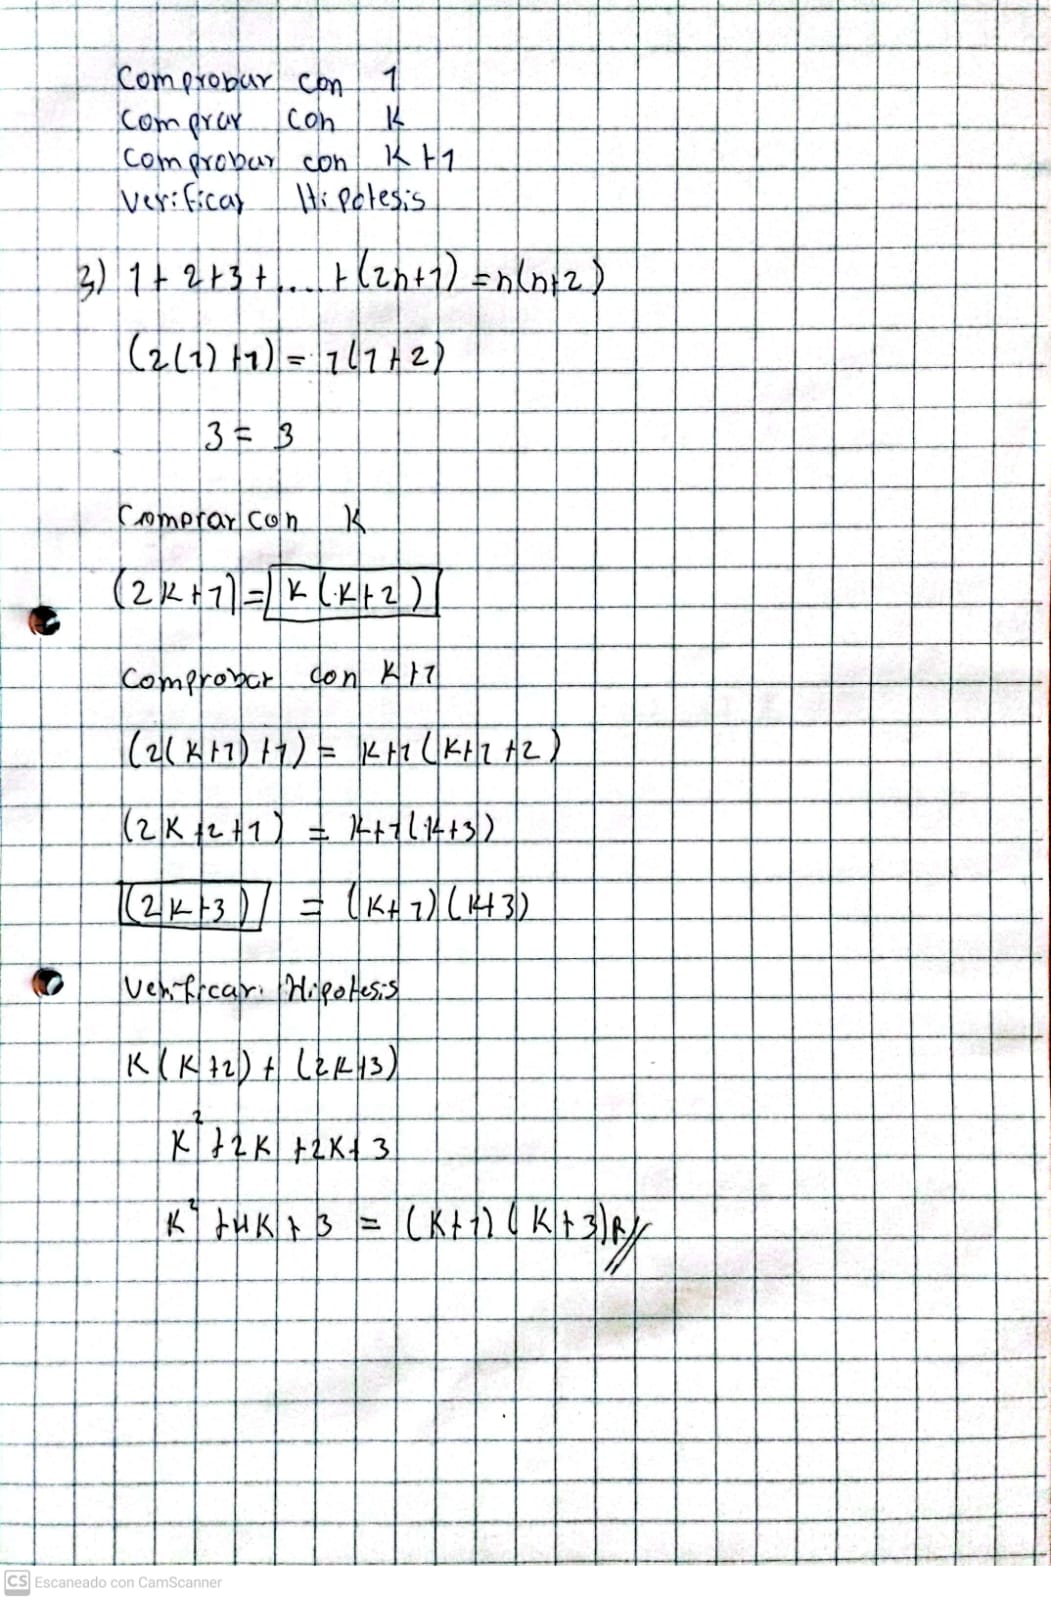 Comprobar con 1
Comprar con K
Comprobar con K+1
Verificar Hipotesis
3) 1+2+3+....+(2n+1)=n(n+2)
(2(1)+1)=1(1+2)
3=3
Comprar con K
(2K+1)=K(K+2)
Comprobar con K+1
(2(K+1)+1)=K+1(K+1+2)
(2K+2+1)=K+1(K+3)
(2K+3)=(K+1)(K+3)
Verificar Hipotesis
K(K+2)+(2K+3)
K²+2K+2K+3
K²+4K+3=(K+1)(K+3)R//
CS Escaneado con CamScanner